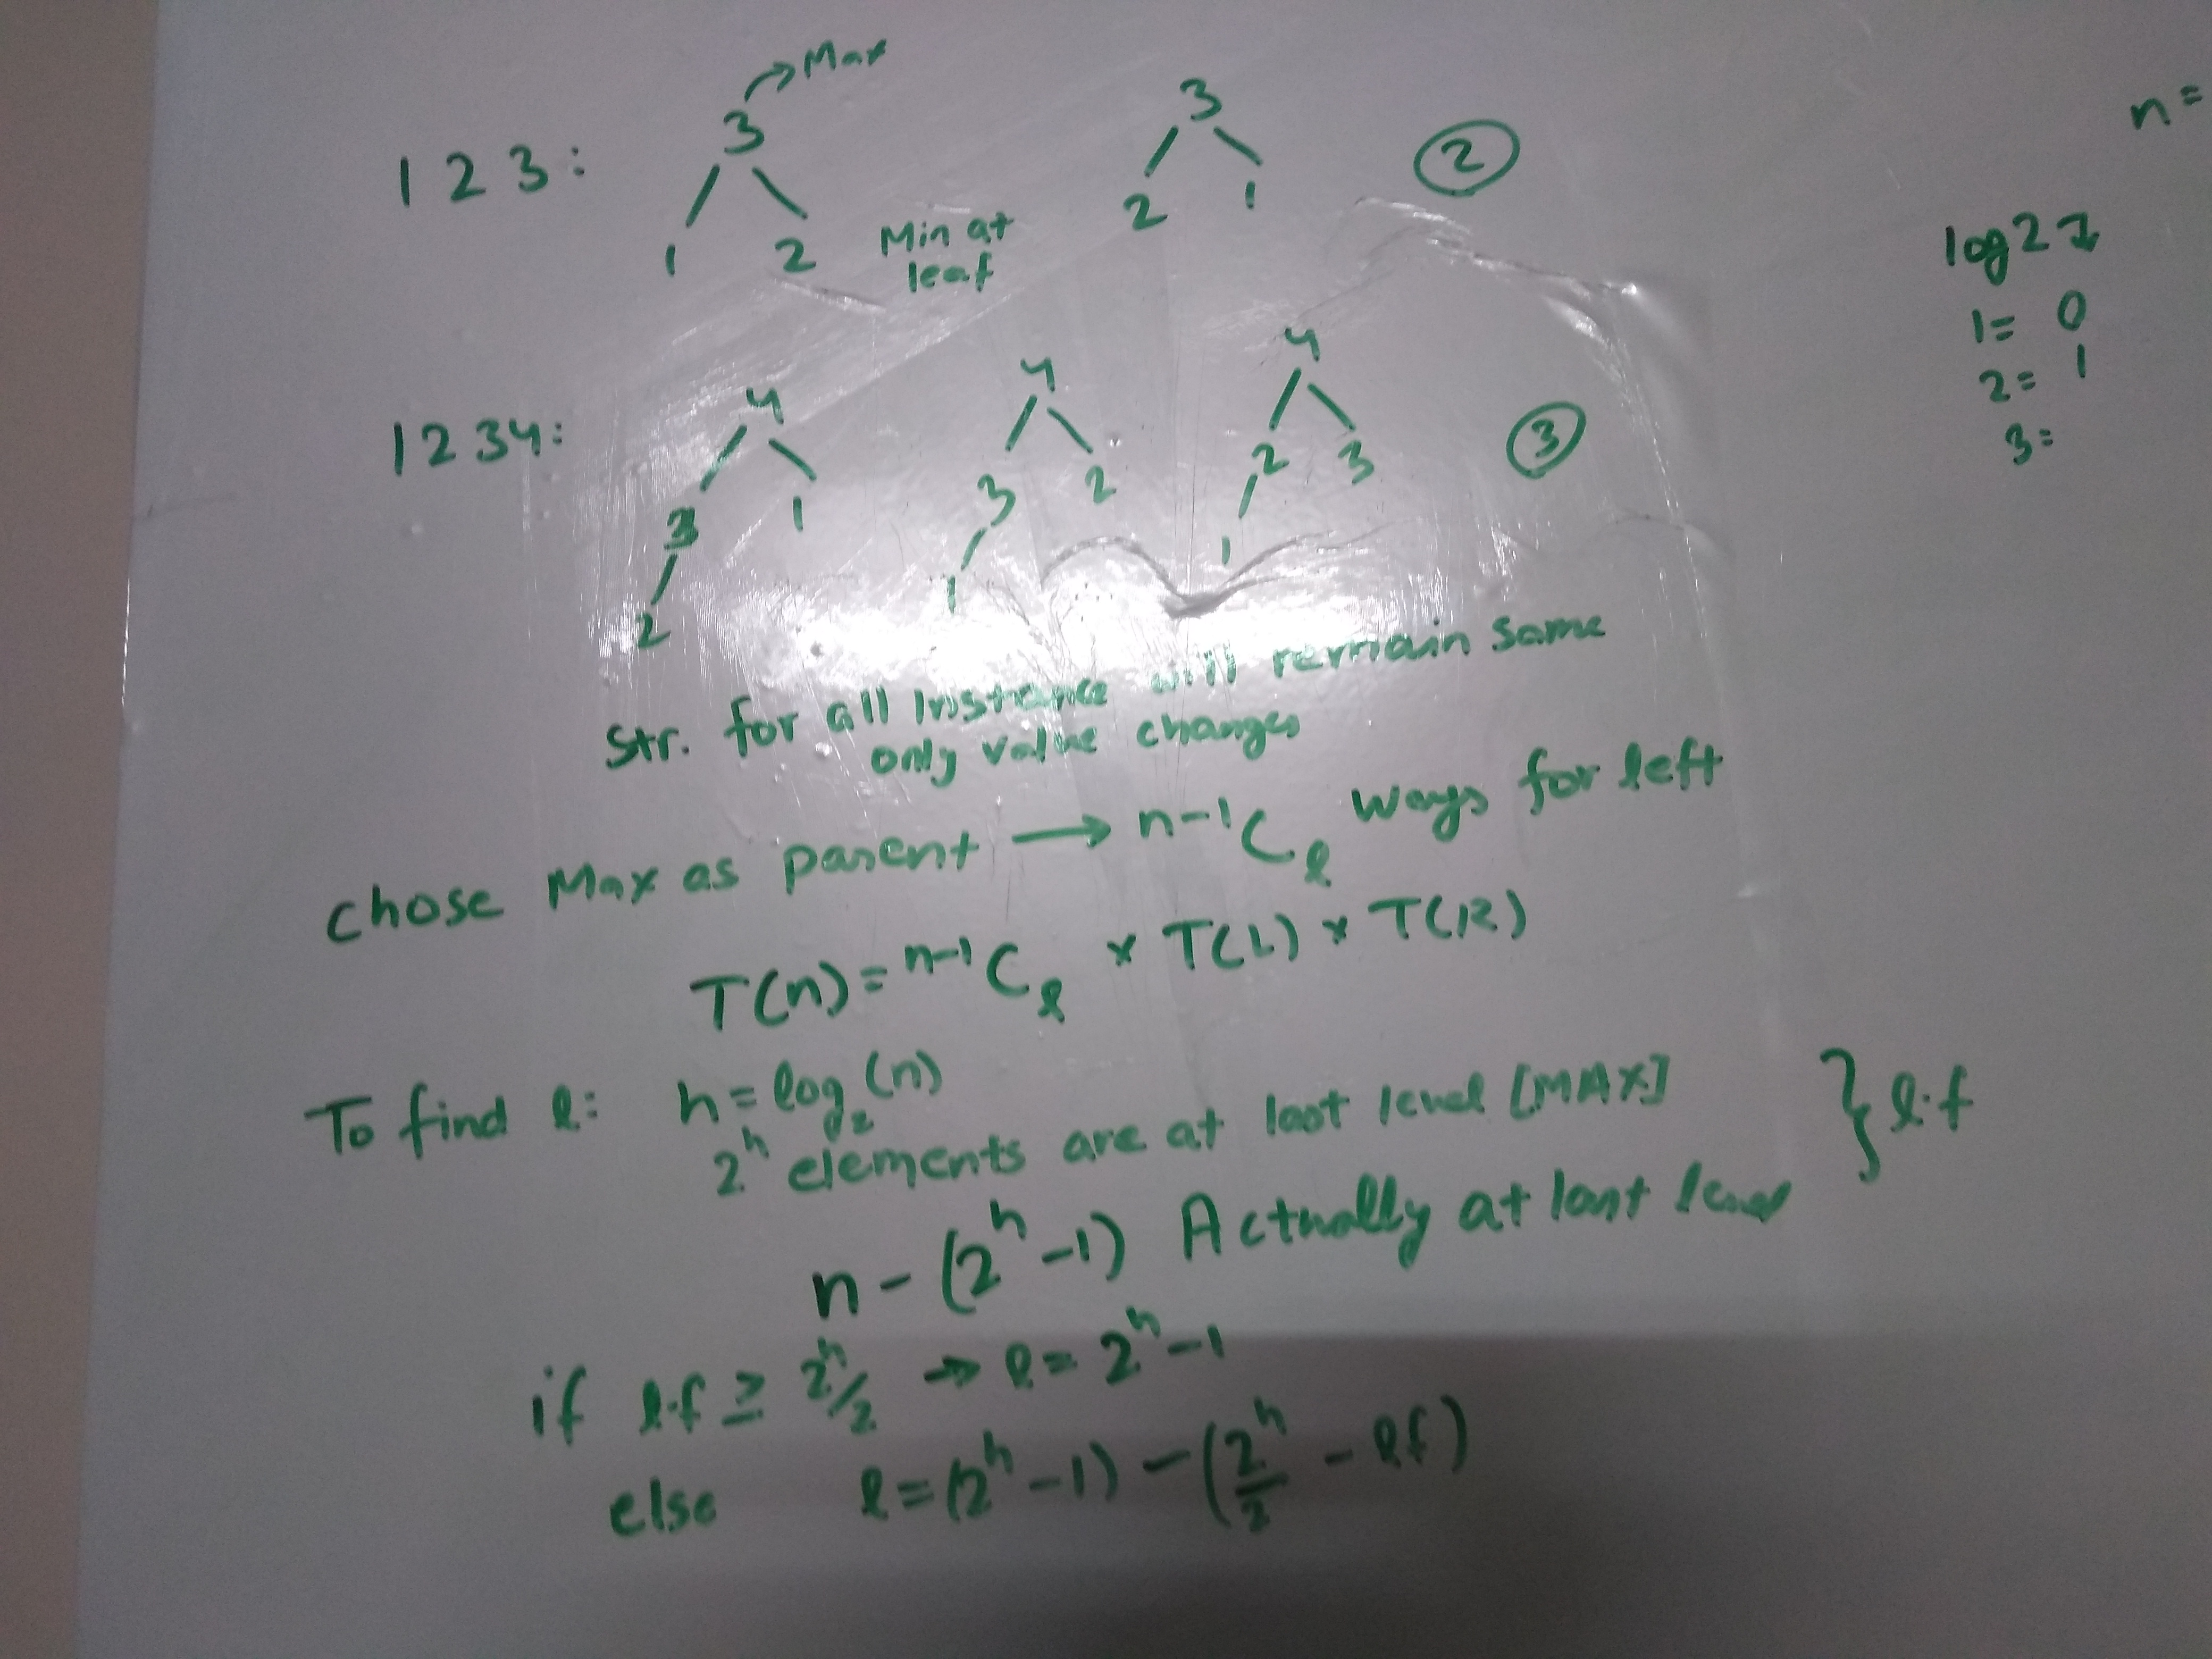 → Max
1 2 3:
3
1 2
Min at
leaf
3
2 1
②
n =
log2
1 = 0
2 = 1
3 =
1 2 3 4:
4
3 1
2
4
3 2
1
4
2 3
1
③
Str. for all Instance will remain same
only value changes
chose Max as parent → n-1Cℓ ways for left
T(n) = n-1Cℓ × T(L) × T(R)
To find ℓ: h = log₂(n)
2^h elements are at last level [MAX]
n - (2^h - 1) Actually at last level
} ℓ.f
if ℓ.f ≥ 2^h/2 → ℓ = 2^h - 1
else ℓ = (2^h - 1) - (2^h/2 - ℓf)